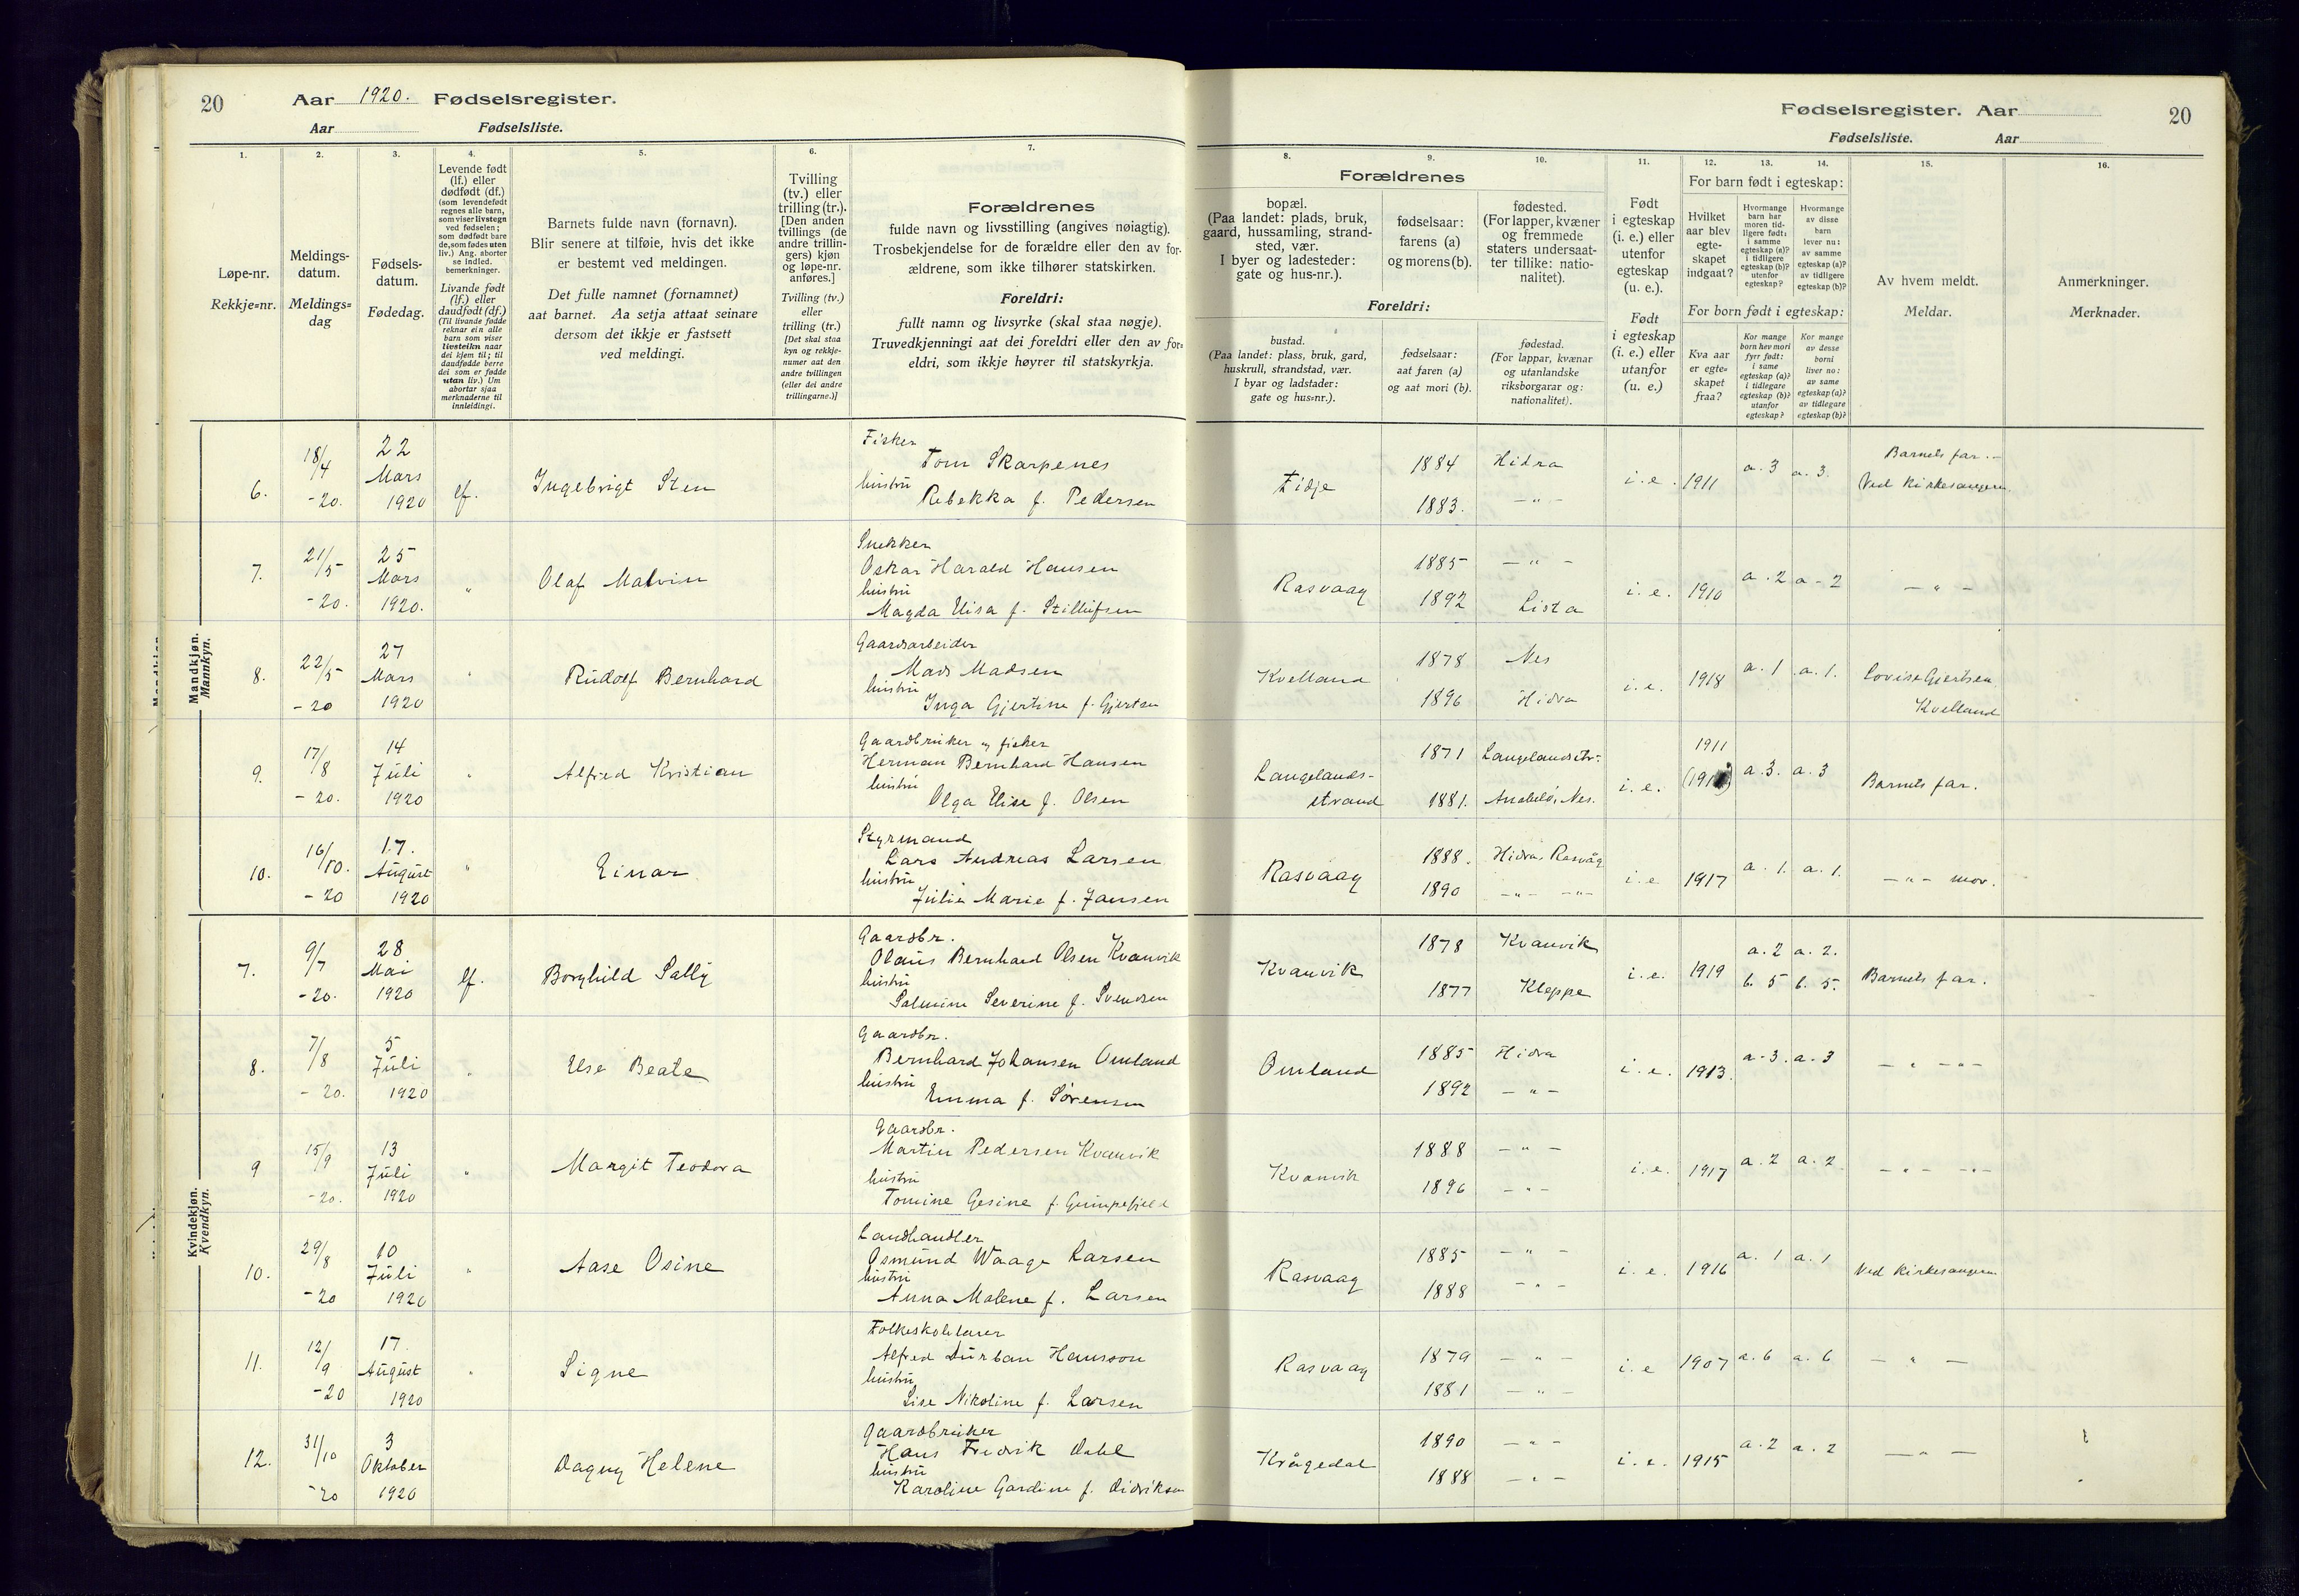 20
Aar 1920. Fødselsregister.
Aar Fødselsliste.
Fødselsregister. Aar
20
Fødselsliste. Aar
1.
Løpe-nr.
Rekkje=nr.
2.
Meldings-
datum.
Meldings=
dag
3.
Fødsels-
datum.
Fødedag.
4.
Levende født
(lf.) eller
dødfødt (df.)
(som levendefødt
regnes alle barn,
som viser livstegn
ved fødselen;
som dødfødt bare
de, som fødes uten
liv.) Ang. aborter
se indled.
bemerkninger.
Livande født
(lf.) eller
daudfødt (df.)
(Til livande fødde
reknar ein alle
barn som viser
livsteikn naar
dei kjem til; til
daudfødde berre
dei som er fødde
utan liv.) Um
abortar sjaa
merknaderne til
innleidingi.
5.
Barnets fulde navn (fornavn).
Blir senere at tilføie, hvis det ikke
er bestemt ved meldingen.
Det fulle namnet (fornamnet)
aat barnet. Aa setja attaat seinare
dersom det ikkje er fastsett
ved meldingi.
6.
Tvilling
(tv.) eller
trilling (tr.).
[Den anden
tvillings (de
andre trillin-
gers) kjøn
og løpe-nr.
anføres.]
Tvilling (tv.)
eller
trilling (tr.)
[Det skal staa
kyn og rekkje-
numer aat den
andre tvillingen
(eller dei andre
trillingarne.)]
7.
Forældrenes
fulde navn og livsstilling (angives nøiagtig).
Trosbekjendelse for de forældre eller den av for-
ældrene, som ikke tilhører statskirken.
Foreldri:
fullt namn og livsyrke (skal staa nøgje).
Truvedkjenningi aat dei foreldri eller den av for=
eldri, som ikkje høyrer til statskyrkja.
Forældrenes
8.
bopæl.
(Paa landet: plads, bruk,
gaard, hussamling, strand-
sted, vær.
I byer og ladesteder:
gate og hus-nr.).
9.
fødselsaar:
farens (a)
og morens (b).
10.
fødested.
(For lapper, kvæner
og fremmede
staters undersaat-
ter tillike: natio-
nalitet).
Foreldri:
bustad.
(Paa landet: plass, bruk, gard,
huskrull, strandstad, vær.
I byar og ladstader:
gate og hus=nr.).
fødselsaar:
aat faren (a)
og aat mori (b).
fødestad.
(For lappar, kvænar
og utanlandske
riksborgarar og:
nationalitet).
11.
Født
i egteskap
(i. e.) eller
utenfor
egteskap
(u. e.).
Født
i egteskap
(i. e.) eller
utanfor
(u. e.)
12. 13. 14.
For barn født i egteskap:
Hvilket
aar blev
egte-
skapet
indgaat?
Hvormange
barn har
moren tid-
ligere født:
i samme
egteskap (a)?
i tidligere
egteskap (b)?
utenfor
egteskap?
Hvormange
av disse
barn
lever nu:
av samme
egteskap (a)?
av tidligere
egteskap (b)?
For born født i egteskap:
Kva aar
er egte=
skapet
fraa?
Kor mange
born hev mori
fyrr født:
i same
egteskap (a)?
i tidlegare
egteskap (b)?
utanfor
egteskap?
Kor mange
av desse
borni
liver no:
av same
egteskap (a)?
av tidlegare
egteskap (b)?
15.
Av hvem meldt.
Meldar.
16.
Anmerkninger.
Merknader.
Mandkjøn.
Mannkyn.
6.
18/4
-20.
22
Mars
1920
lf.
Ingebrigt Sten
Fisker
Tom Skarpenes
hustru
Rebekka f. Pedersen
Fidje
1884
1883.
Hidra
-"-
i. e. 1911 a. 3 a. 3.
Barnets far.
Ved kirkesangeren
7.
21/5
-20.
25
Mars
1920.
"
Olaf Malvin
Snekker
Oskar Harald Hansen
hustru
Magda Elisa f. Stillufsen
Rasvaag
1885
1892
- " -
Lista
i. e. 1910 a. 2 a - 2
- " -
8.
22/5
-20
27
Mars
1920
"
Rudolf Bernhard
Gaardsarbeider
Mads Madsen
hustru
Inga Gjertine f. Gjertsen
Kvelland
1878
1896
Nes
Hidra
i. e. 1918 a. 1 a. 1.
Lovise Gjertsen
Kvelland
9.
17/8
- 20.
14
Juli
1920
"
Alfred Kristian
Gaardbruker og fisker
Herman Bernhard Hansen
hustru
Olga Elise f. Olsen
Langelands-
strand
1871
1881.
Langelandsstr.
Anabelø, Nes.
i. e.
1911
a. 3. a. 3
Barnets far.
10.
16/10.
- 20
17.
August
1920
"
Einar
Styrmand
Lars Andreas Larsen
hustru
Julie Marie f. Jansen
Rasvaag
1888.
1890
Hidra, Rasvåg
-"- -"-
i. e. 1917 a. 1. a. 1.
- " - mor.
Kvindekjøn.
Kvendkyn.
7.
9/7
-20.
28
Mai
1920
lf.
Borghild Sally
Gaardbr.
Olaus Bernhard Olsen Kvanvik
hustru
Salmine Severine f. Svendsen
Kvanvik
1878
1877
Kvanvik
Kleppe
i. e. 1919
a. 2 a. 2.
b. 5 b. 5.
Barnets far.
8.
7/8
- 20.
5
Juli
1920
"
Else Beate
Gaardbr.
Bernhard Johansen Omland
hustru
Emma f. Sørensen
Omland
1885
1892
Hidra
- " -
i. e. 1913. a - 3. a. 3
- " - -"-
9
15/9
-20.
13
Juli
1920
"
Margit Teodora
Gaardbr.
Martin Pedersen Kvanvik
hustru
Tomine Gesine f. Gumpefjeld
Kvanvik
1888
1896
- " -
- " -
i. e. 1917 a. 2 a. 2
- " - -"-
10.
29/8
-20
10
Juli
1920
"
Aase Osine
Landhandler
Osmund Waage Larsen
hustru
Anna Malene f. Larsen
Rasvaag
1885
1888
- " -
- " -
i. e. 1916 a. 1 a. 1
Ved kirkesangeren
11.
12/9
-20
17.
August
1920
"
Signe
Folkeskolelærer
Alfred Durban Hansson
hustru
Lise Nikoline f. Larsen
Rasvaag
1879
1881
- " -
- " -
i. e 1907 a. 6 a. 6
- " -
12.
31/10
-20
3
Oktober
1920
Dagny Helene
Gaardbruker
Hans Fredrik Dahl
hustru
Karoline Gardine f. Didriksen
Krågedal
1890
1888
- " -
- " -
i. e. 1915 a. 2 a. 2
- " -